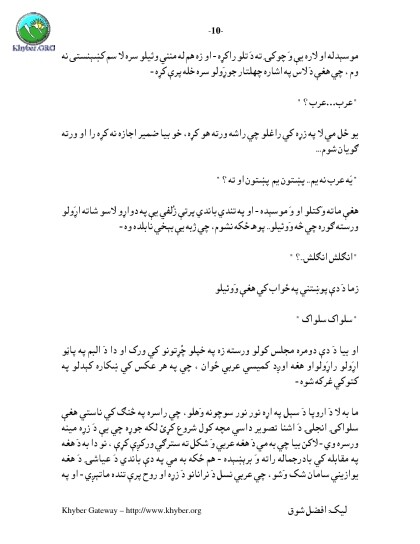 -10-
Khyber.ORG
موسېدله او لاره يې وَ چوکۍ ته دَ تلو راکړه - او زه هم له منښې وئيلو سره لاسم کښېنستى نه
وم ، چې هغې دَ لاس په اشاره چهلتار جوړولو سره خله پرې کړه -
"عرب...عرب ؟ "
يو ځل مې لا په زړه کې راغلو چې راشه ورته هو کړه ، خو بيا ضمير اجازه نه کړه را او ورته
ګويان شوم...
"يَه عرب نه يم.. پښتون يم پښتون او ته ؟ "
هغې ماته وکتلو او وَ موسېده - او په تندي باندې پرتې زُلفې يې په دواړو لاسو شاته اړولو
ورسته ګوره چې څه وَوئيلو.. پوهـ ځکه نشوم، چې ژبه يې بېخي نابلده وه -
"انګلش انګلش..؟ "
زما دَ دې پوښتنې په ځواب کې هغې وَوئيلو
"سلواک سلواک "
او بيا دَ دې دومره مجلس کولو ورسته زه په خپلو چُرتونو کې ورک او دا دَ البم په پاڼو
اړولو راړولو او هغه اوږد کميسي عربي ځوان ، چې په هر عکس کې ښکاره کېدلو په
کتو کې غرکه شوه -
ما به لا دَ اروپا دَ سېل په اړه نور نور سوچونه وَهلو ، چې راسره په څنګ کې ناستې هغې
سلواکۍ انجلۍ دَ اشنا تصوير داسې مچه کول شروع کړئ لکه جوړه چې يې دَ زړه مينه
ورسره وي - لاکن بيا چې به مې دَ هغه عربي وَ شکل ته سترګې ورکړې کړې ، نو دا به دَ هغه
په مقابله کې بادرجماله راته وَ برېښېده - هم ځکه به مې په دې باندې دَ عياشۍ دَ هغه
يوازينې سامان شک وَشو ، چې عربي نسل دَ نرانانو دَ زړه او روح پرې تنده ماتېږي - او په
Khyber Gateway – http://www.khyber.org
ليک: افضل شوق